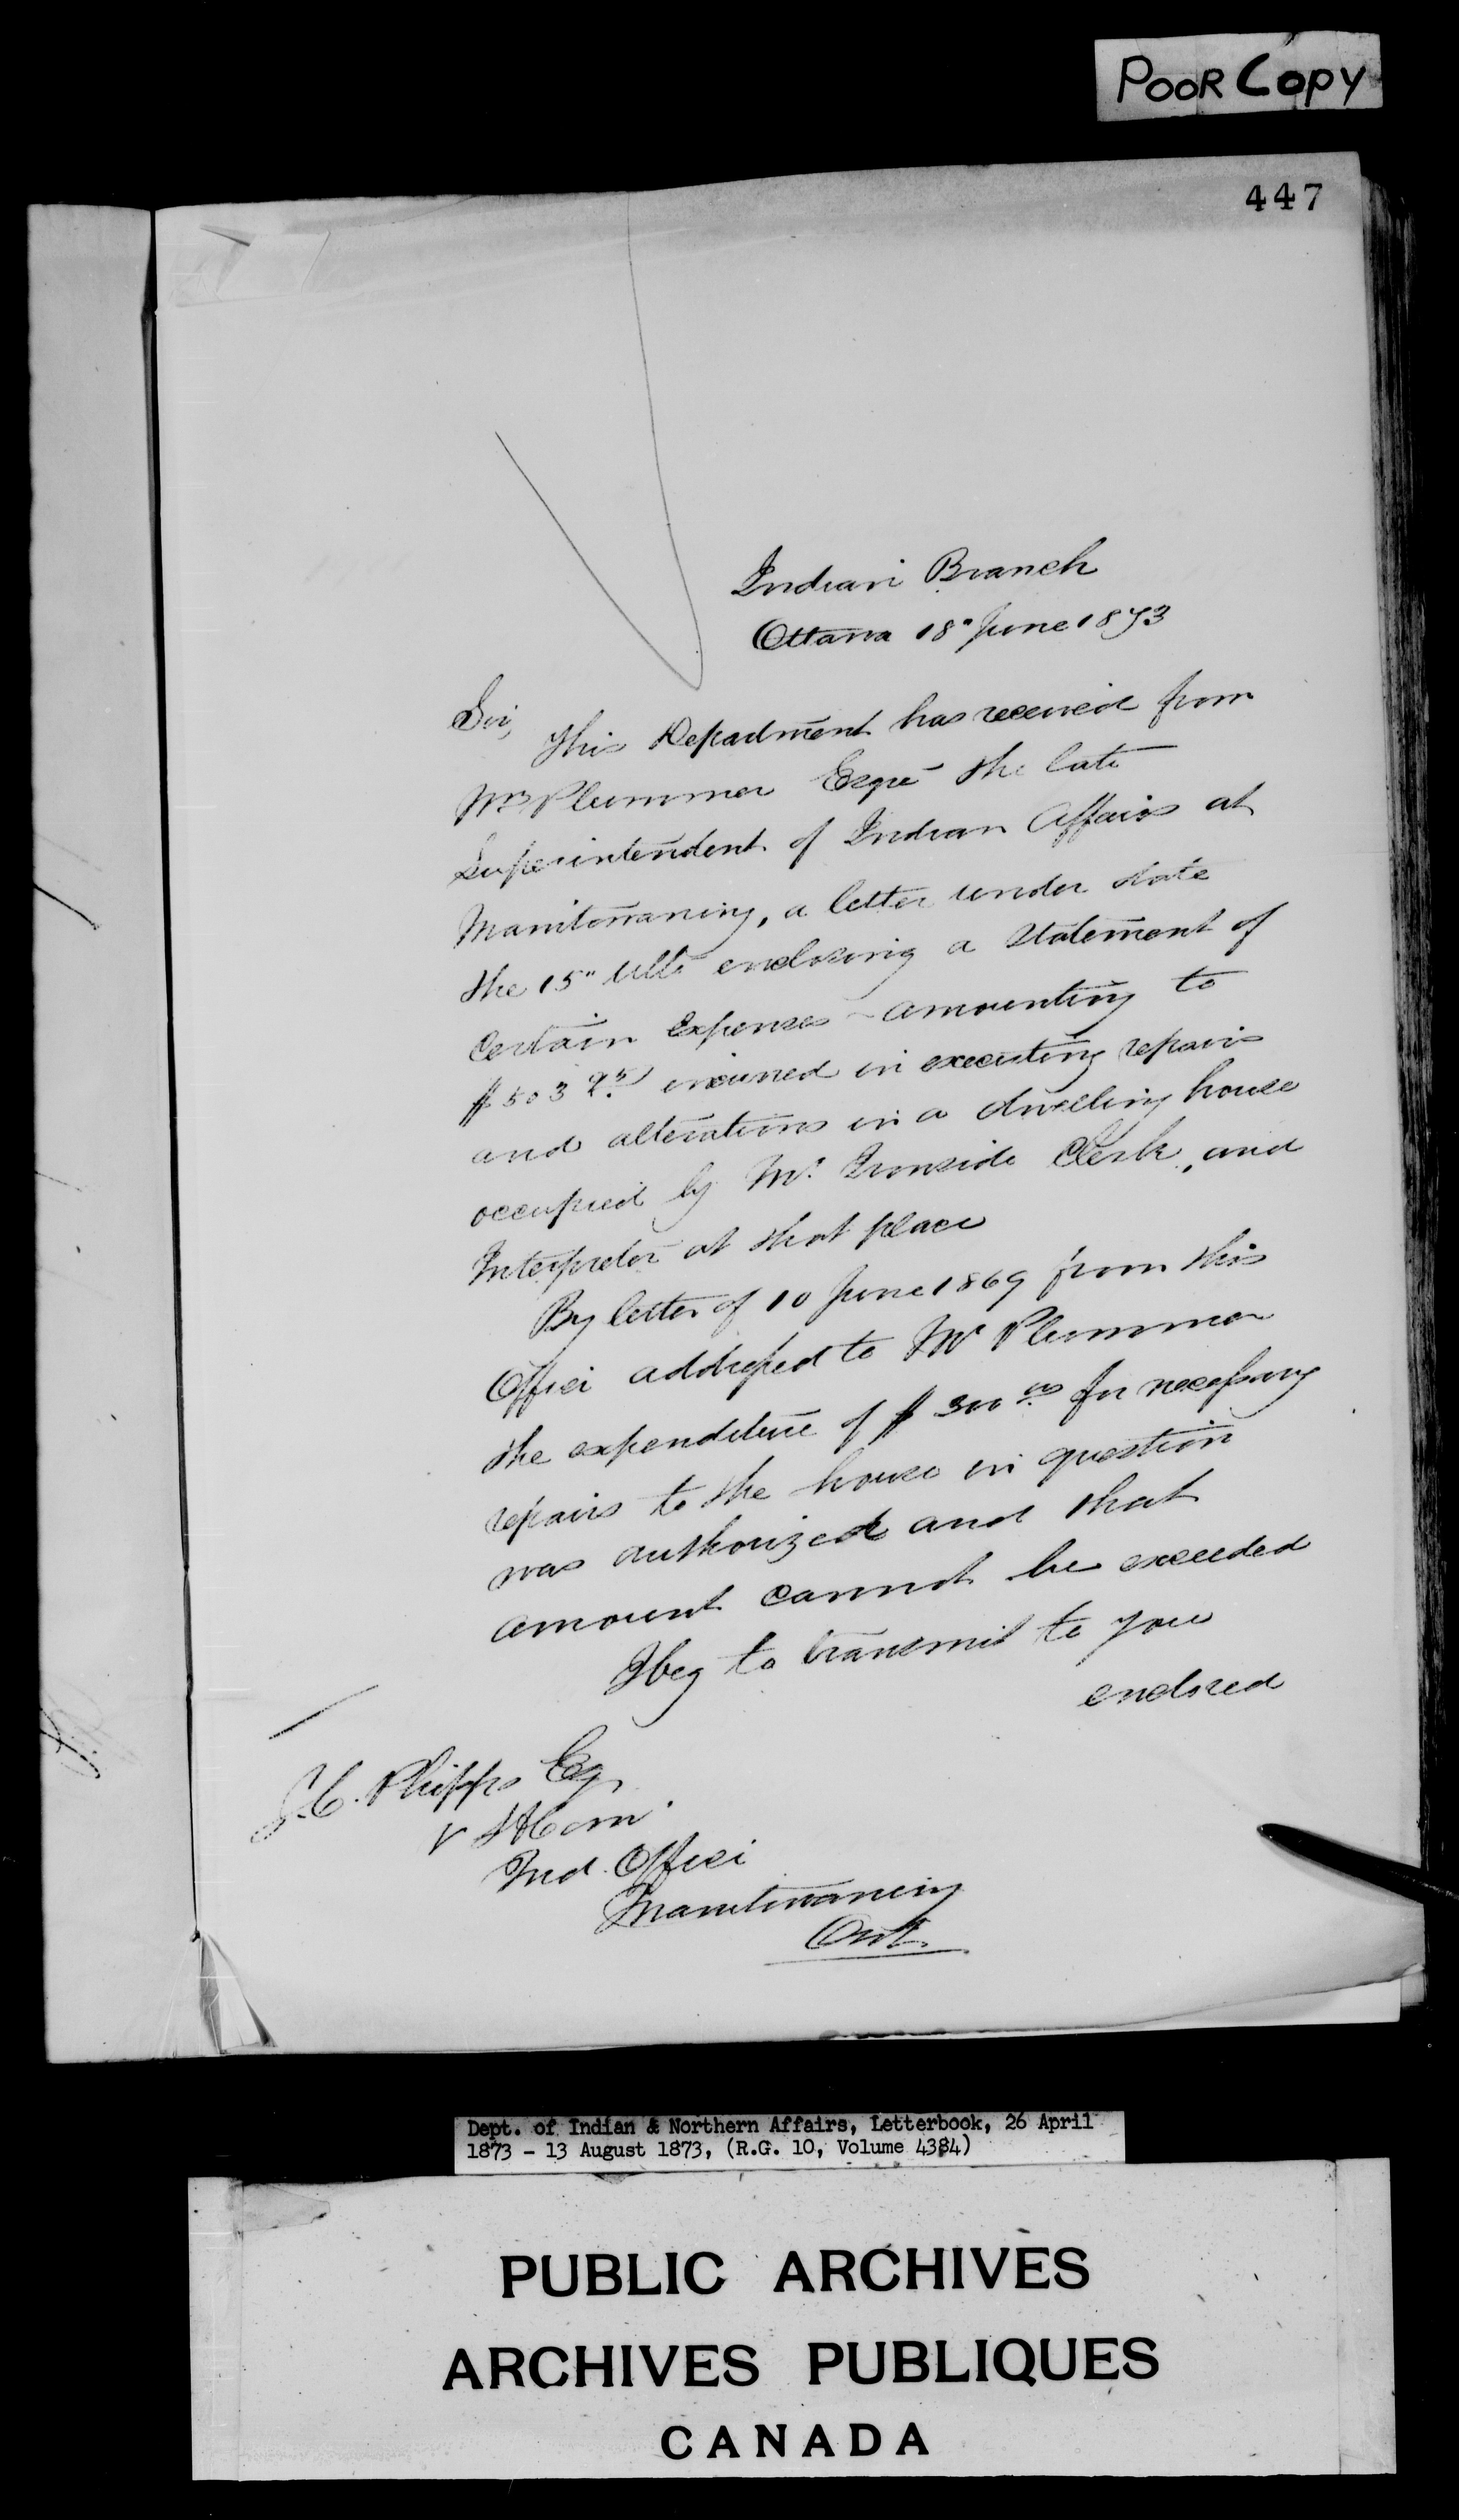 POOR COPY
447
Indian Branch
Ottawa 18" June 1873
Sir,
This Department has received from
Wm Plummer Esqre the late
Superintendent of Indian Affairs at
Manitowaning, a letter under date
the 15" Ulto enclosing a Statement of
Certain Expenses amounting to
$503 95 incurred in executing repairs
and alterations in a dwelling house
occupied by Mr. Ironside Clerk, and
Interpreter at that place
By letter of 10 June 1869 from this
Office addressed to Mr Plummer
the expenditure of $300 00 for necessary
repairs to the house in question
was authorized and that
amount cannot be exceeded
I beg to transmit to you
enclosed
J.C. Phipps Esq
V S & Com
Ind. Office
Manitowaning
Ont.
Dept. of Indian & Northern Affairs, Letterbook, 26 April
1873 - 13 August 1873, (R.G. 10, Volume 4384)
PUBLIC ARCHIVES
ARCHIVES PUBLIQUES
CANADA